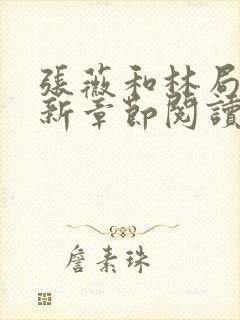 張薇和林局
新章節閱讀
詹素珠